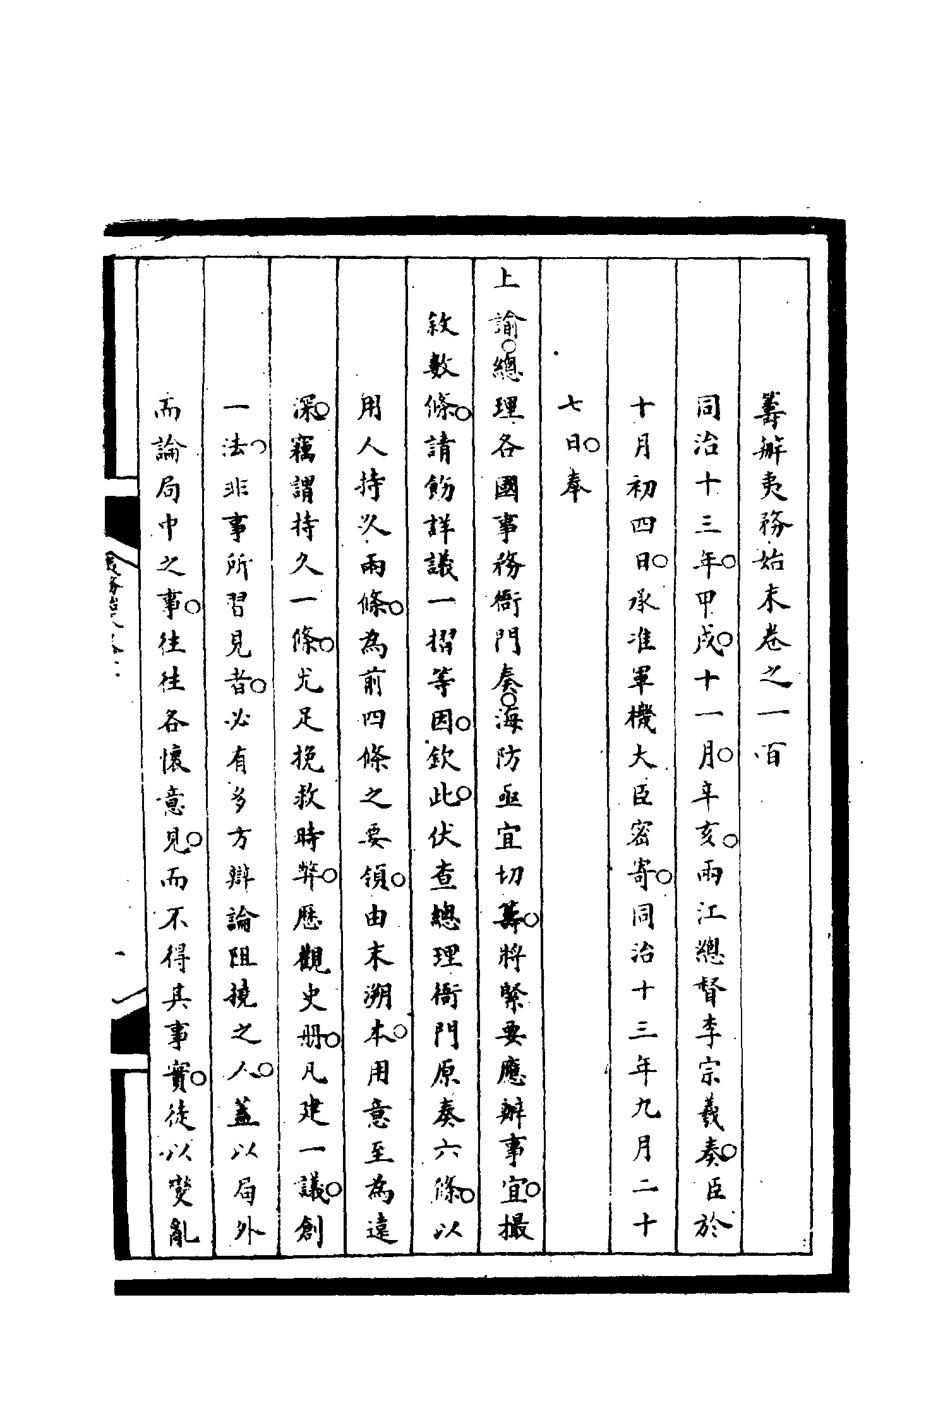 籌辦夷務始末卷之一百
同治十三年○甲戌○十一月○辛亥○兩江總督李宗羲奏○臣於
十月初四日○承准軍機大臣密寄○同治十三年九月二十
七日○奉
上諭○總理各國事務衙門奏○海防亟宜切籌○將緊要應辦事宜○撮
敘數條○請飭詳議一摺等因○欽此○伏查總理衙門原奏六條○以
用人持久兩條○為前四條之要領○由末溯本○用意至為遠
深○竊謂持久一條○尤足挽救時弊○歷觀史册○凡建一議○創
一法○非事所習見者○必有多方辯論阻撓之人○蓋以局外
而論局中之事○往往各懷意見○而不得其事實○徒以變亂